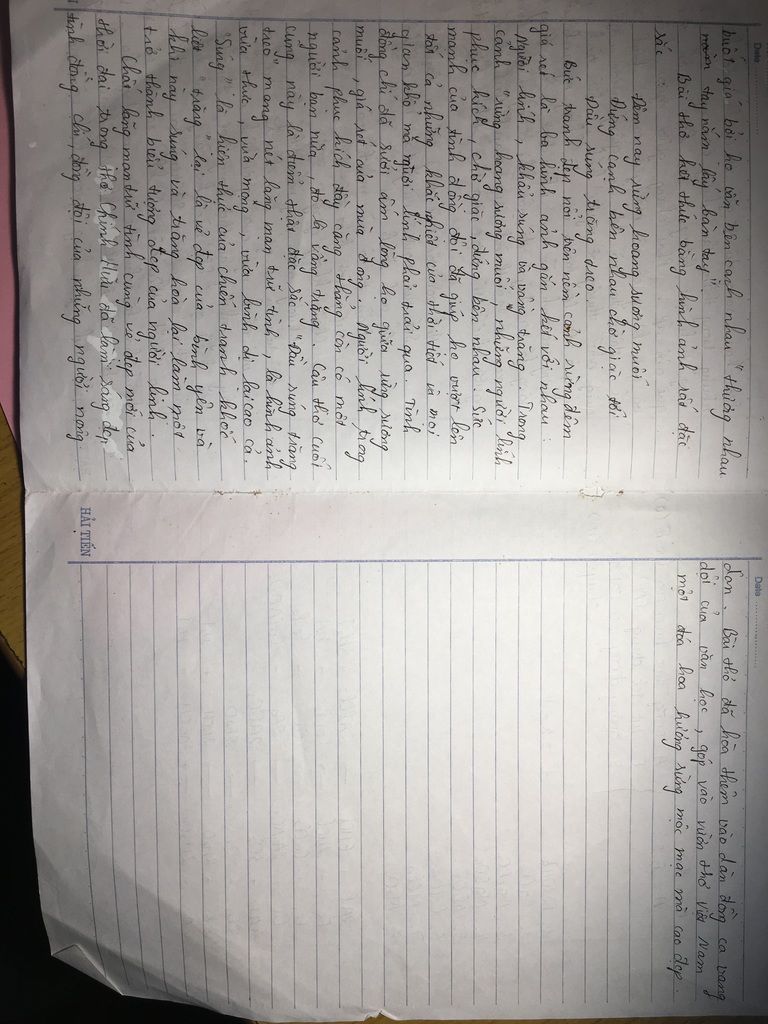 Date
buốt giá bởi họ vẫn bên cạnh nhau "thương nhau
nắm tay nắm lấy bàn tay"
Bài thơ kết thúc bằng hình ảnh rất đặc
sắc :
Đêm nay rừng hoang sương muối
Đứng cạnh bên nhau chờ giặc tới
Đầu súng trăng treo.
Bức tranh đẹp nổi trên nền cảnh rừng đêm
giá rét là ba hình ảnh gắn kết với nhau :
Người lính, khẩu súng và vầng trăng. Trong
cảnh "rừng hoang sương muối", những người lính
phục kích, chờ giặc, đứng bên nhau. Sức
mạnh của tình đồng đội đã giúp họ vượt lên
tất cả những khắc nghiệt của thời tiết và mọi
gian khổ mà người lính phải trải qua. Tình
đồng chí đã sưởi ấm lòng họ giữa rừng sương
muối, giá rét của mùa đông. Người lính trong
cảnh phục kích đầy căng thẳng còn có một
người bạn nữa, đó là vầng trăng. Câu thơ cuối
cùng này là điểm thật đặc sắc "Đầu súng trăng
treo" mang nét lãng mạn trữ tình, là hình ảnh
vừa thực, vừa mộng, vừa bình dị lại cao cả.
"Súng" là hiện thực của chiến tranh khốc
liệt, "trăng" lại là vẻ đẹp của bình yên và
khi nay súng và trăng hoà lại làm một
trở thành biểu tượng đẹp của người lính.
Chất lãng mạn trữ tình cùng vẻ đẹp mới của
thời đại trong thơ Chính Hữu đã làm sáng đẹp
tình đồng chí, đồng đội của những người nông
HẢI TIẾN
Date
dân. Bài thơ đã hòa thêm vào dàn đồng ca vang
dội của văn học, góp vào vườn thơ Việt Nam
một đoá hoa hương rừng mộc mạc mà cao đẹp.